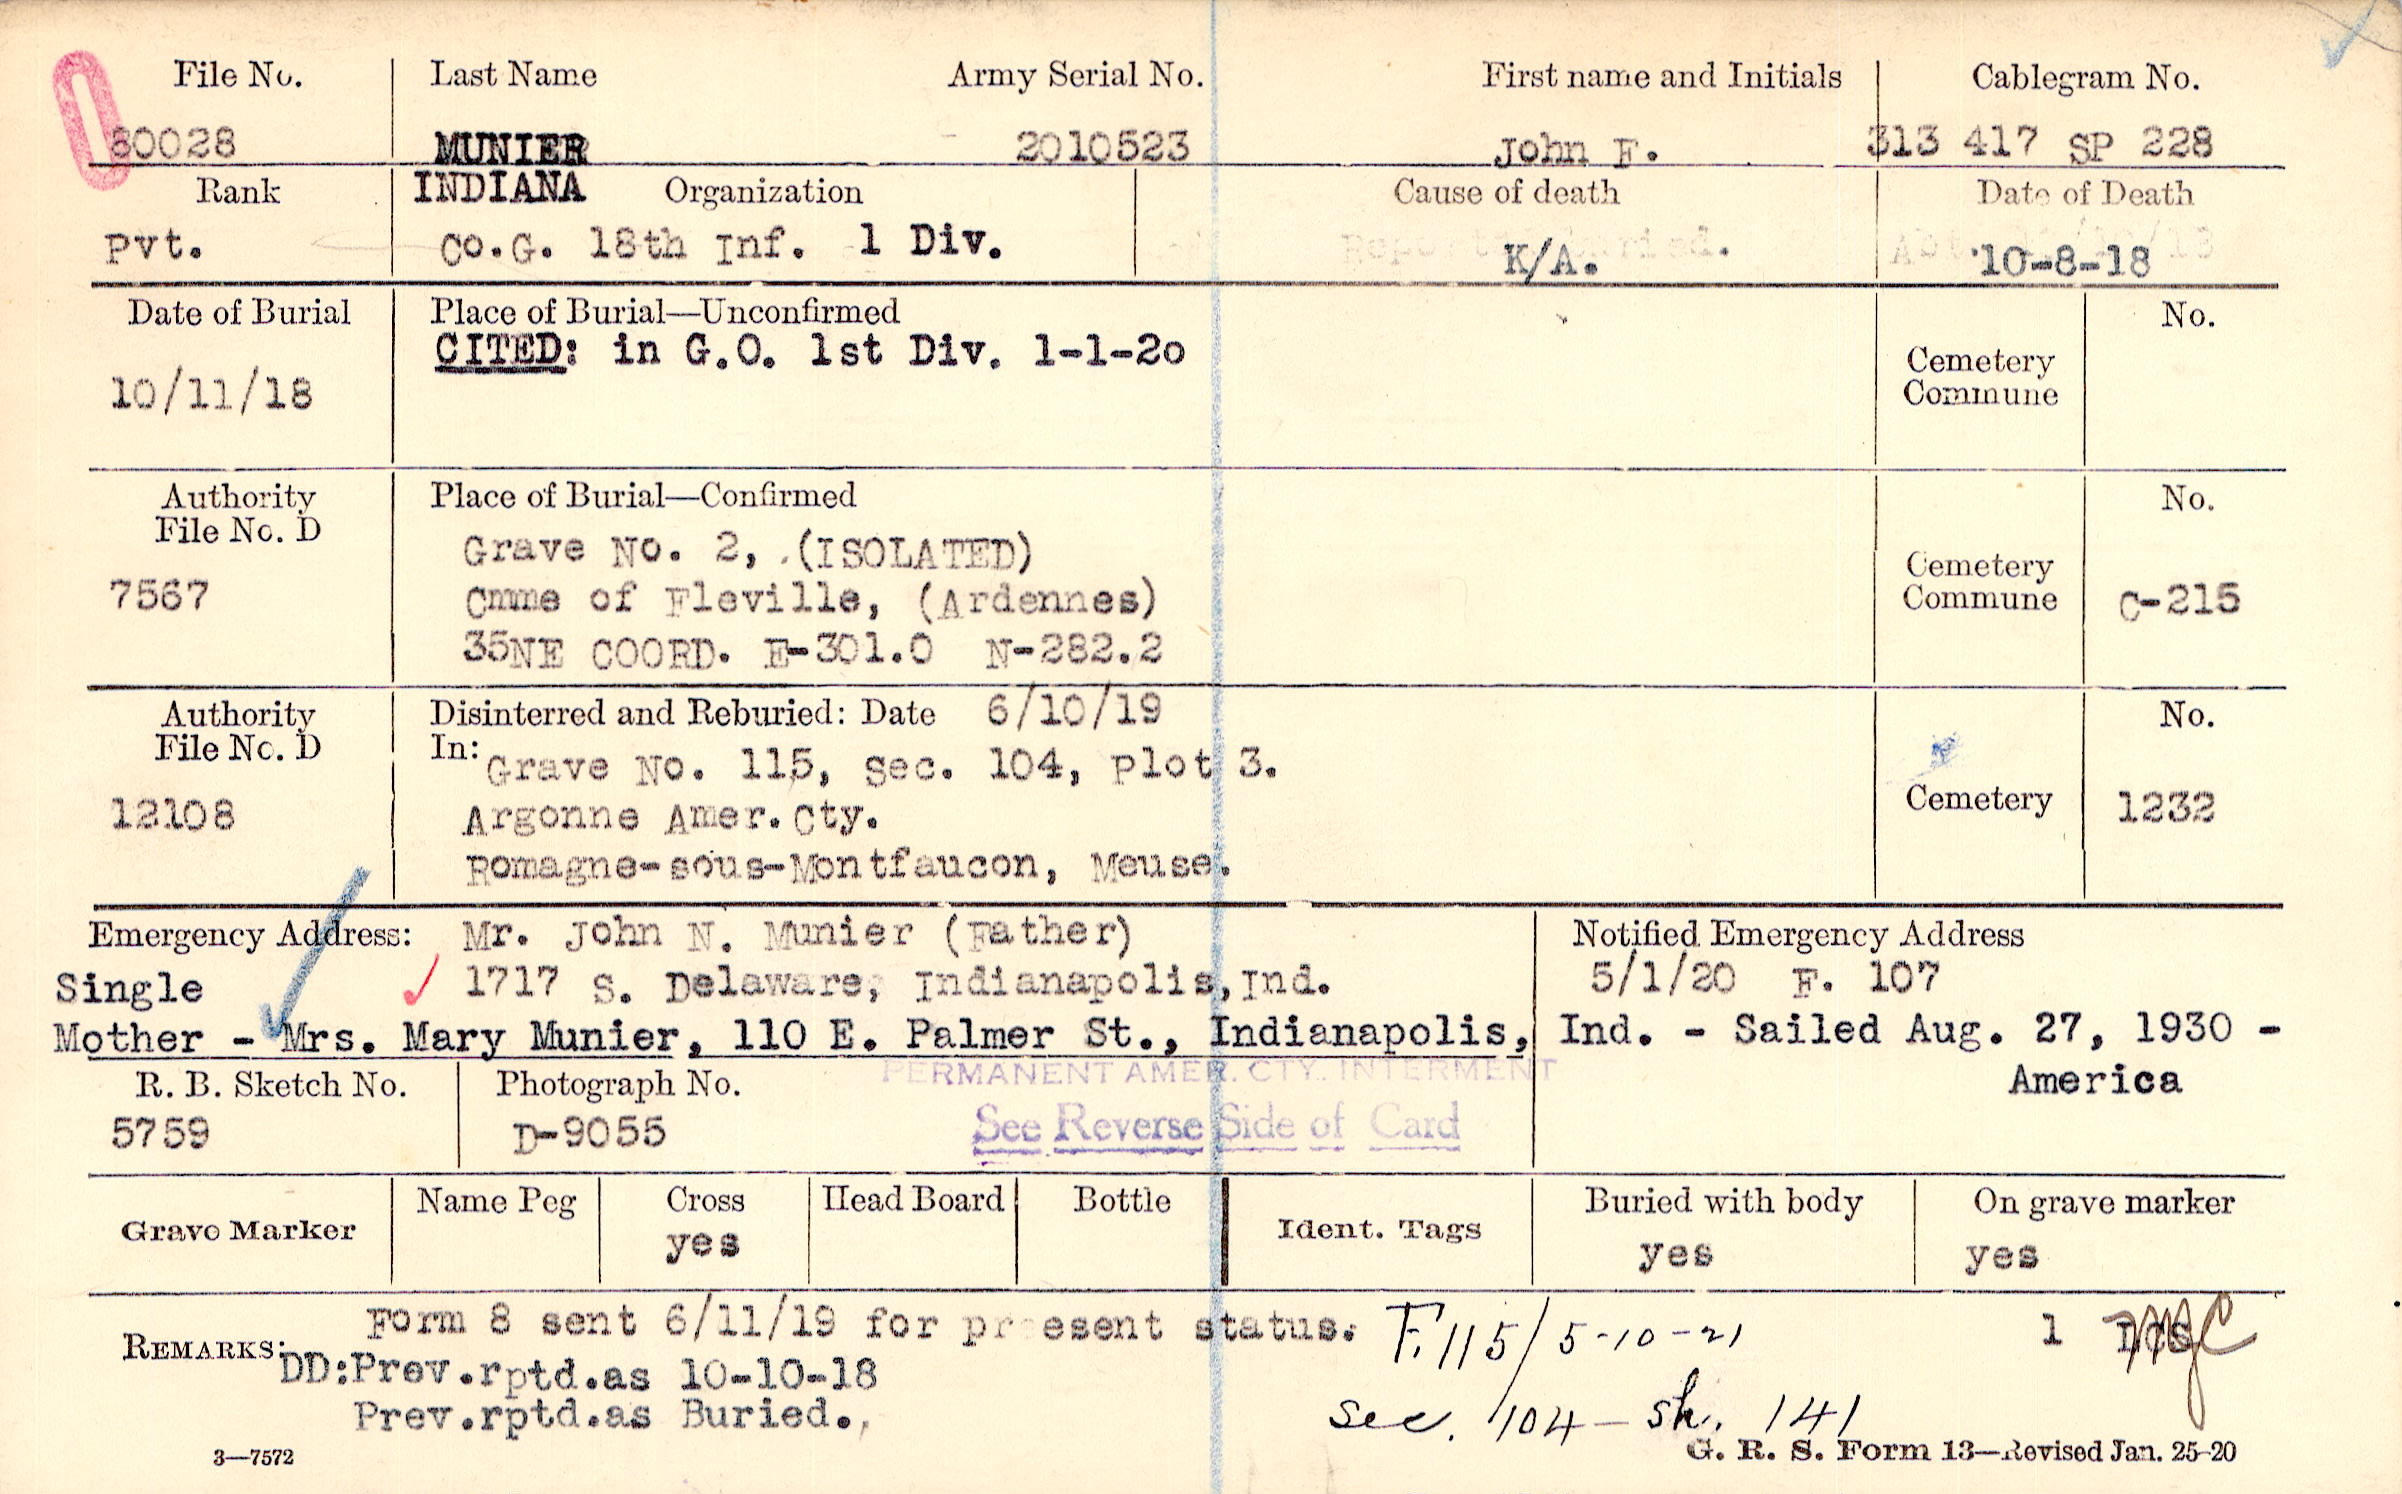 File No. Last Name Army Serial No. First name and Initials Cablegram No.
60028 MUNIER 2010523 John F. 313 417 SP 228
Rank INDIANA Organization Cause of death Date of Death
Pvt. Co.G. 18th Inf. 1 Div. K/A. 10-8-18
Date of Burial Place of Burial—Unconfirmed No.
CITED: in G.O. 1st Div. 1-1-2o
Cemetery
10/11/18 Commune
Authority Place of Burial—Confirmed No.
File No. D
Grave No. 2, (ISOLATED)
7567 Cmme of Fleville, (Ardennes) Cemetery
Commune C-215
35NE COORD. E-301.0 N-282.2
Authority Disinterred and Reburied: Date 6/10/19 No.
File No. D In: Grave No. 115, Sec. 104, Plot 3.
12108 Argonne Amer. Cty. Cemetery 1232
Romagne-sous-Montfaucon, Meuse.
Emergency Address: Mr. John N. Munier (Father) Notified Emergency Address
Single 1717 S. Delaware, Indianapolis, Ind. 5/1/20 F. 107
Mother - Mrs. Mary Munier, 110 E. Palmer St., Indianapolis, Ind. - Sailed Aug. 27, 1930 -
America
PERMANENT AMER. CTY. INTERMENT
R. B. Sketch No. Photograph No.
5759 D-9055 See Reverse Side of Card
Grave Marker Name Peg Cross Head Board Bottle Ident. Tags Buried with body On grave marker
yes yes yes
REMARKS: Form 8 sent 6/11/19 for present status. F.115/5-10-21 1
DD:Prev.rptd.as 10-10-18
Prev.rptd.as Buried. Sec. 104 - sh. 141
3—7572 G. R. S. Form 13—Revised Jan. 25-20